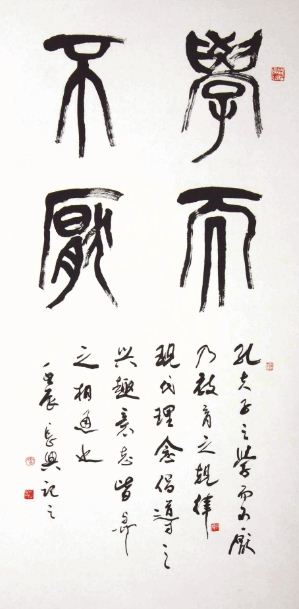 學而
不厭
孔夫子之學而不厭
乃教育之規律
現代理念倡導之
興趣意志皆與
之相通也
壬辰長興記之